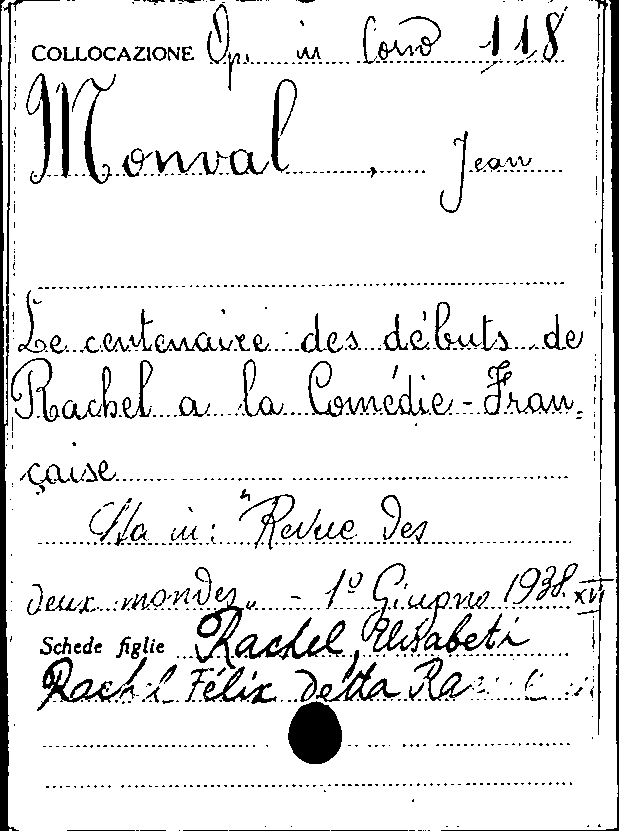 COLLOCAZIONE Op. in Corso 118
Monval, Jean
Le centenaire des débuts de
Rachel a la Comédie-Fran=
çaise
Sta in: "Revue des
deux mondes„ - 1º Giugno 1938.XVI
Schede figlie Rachel, Elisabeti
Rachel Félix detta